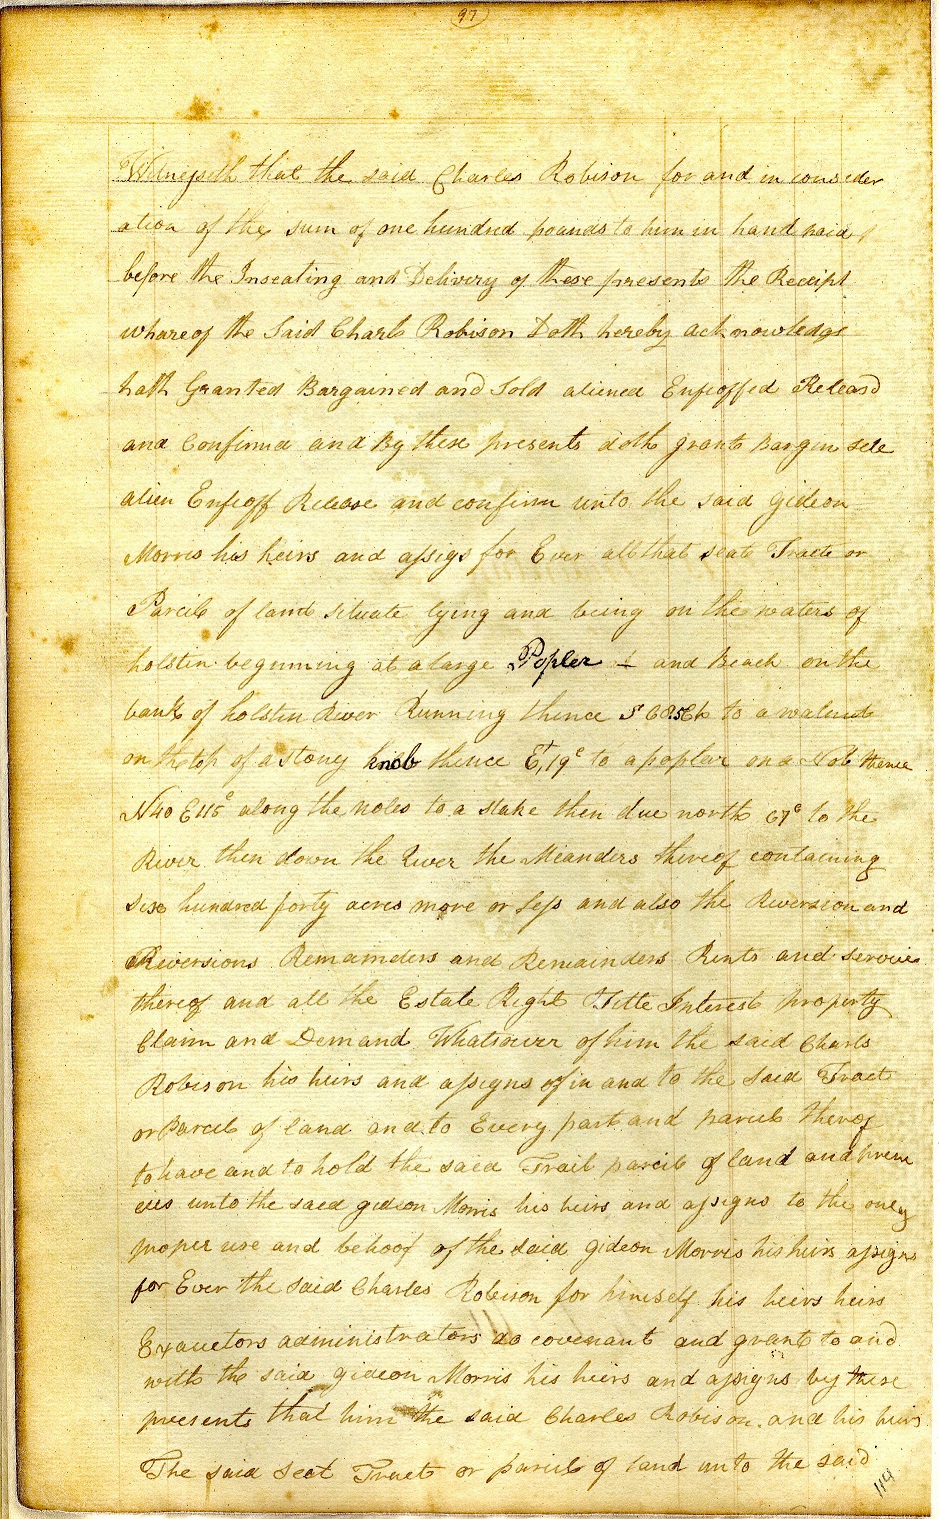 97
Witnesseth that the said Charles Robison for and in consider
ation of the sum of one hundred pounds to him in hand paid
before the Insealing and Delivery of these presents the Receipt
whareof the Said Charls Robison Doth hereby acknowledge
hath Granted Bargained and Sold aliened Enfeoffed Releasd
and Confirmd and By these presents doth grant Bargen sele
alien Enfeoff Release and confirm unto the said gideon
Morris his heirs and assigs for Ever all that seat Tract or
Parcil of land situate lying and being on the waters of
holstin beginning at a large Popler and Beach on the
bank of holstin River Running thence S to a walnut
on the top of a stony knob thence Et, 19c to a poplar on a Nob thence
N40 E115c along the nobs to a stake then due north 67c to the
River then down the River the Meanders thereof containing
six hundred forty acres more or less and also the Reversion and
Reversions Remainders and Remainders Rents and servies
thereof and all the Estate Right Title Interest property
Claim and Demand Whatsover of him the said Charls
Robison his heirs and assigns of in and to the said Tract
or Parcil of land and to Every part and parcil therof
to have and to hold the said Trail parcil of land and prem
eies unto the said gideon Morris his heirs and assigns to the only
proper use and behoof of the said gideon Morris his heirs assigns
for Ever the said Charles Robison for himself his heirs heirs
Exauctors administrators do covenant and grant to and
with the said gideon Morris his heirs and assigns by these
presents that him the said Charles Robison and his heirs
The said Seat Tract or parcil of land unto the said
114